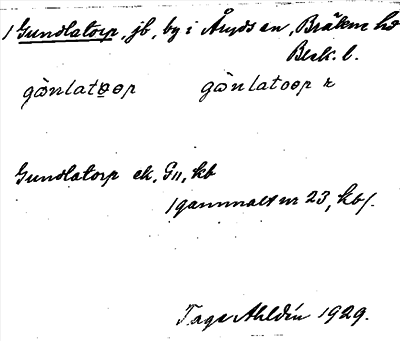 1 Gundlatorp, jb, by i Åryds sn, Bräkne hd
Blek. l.
gɷ̀nlatɷrp gɷ̀nlatorp r
Gundlatorp ek, G11, kb
/gammalt nr 23, kb/.
Tage Ahldin 1929.